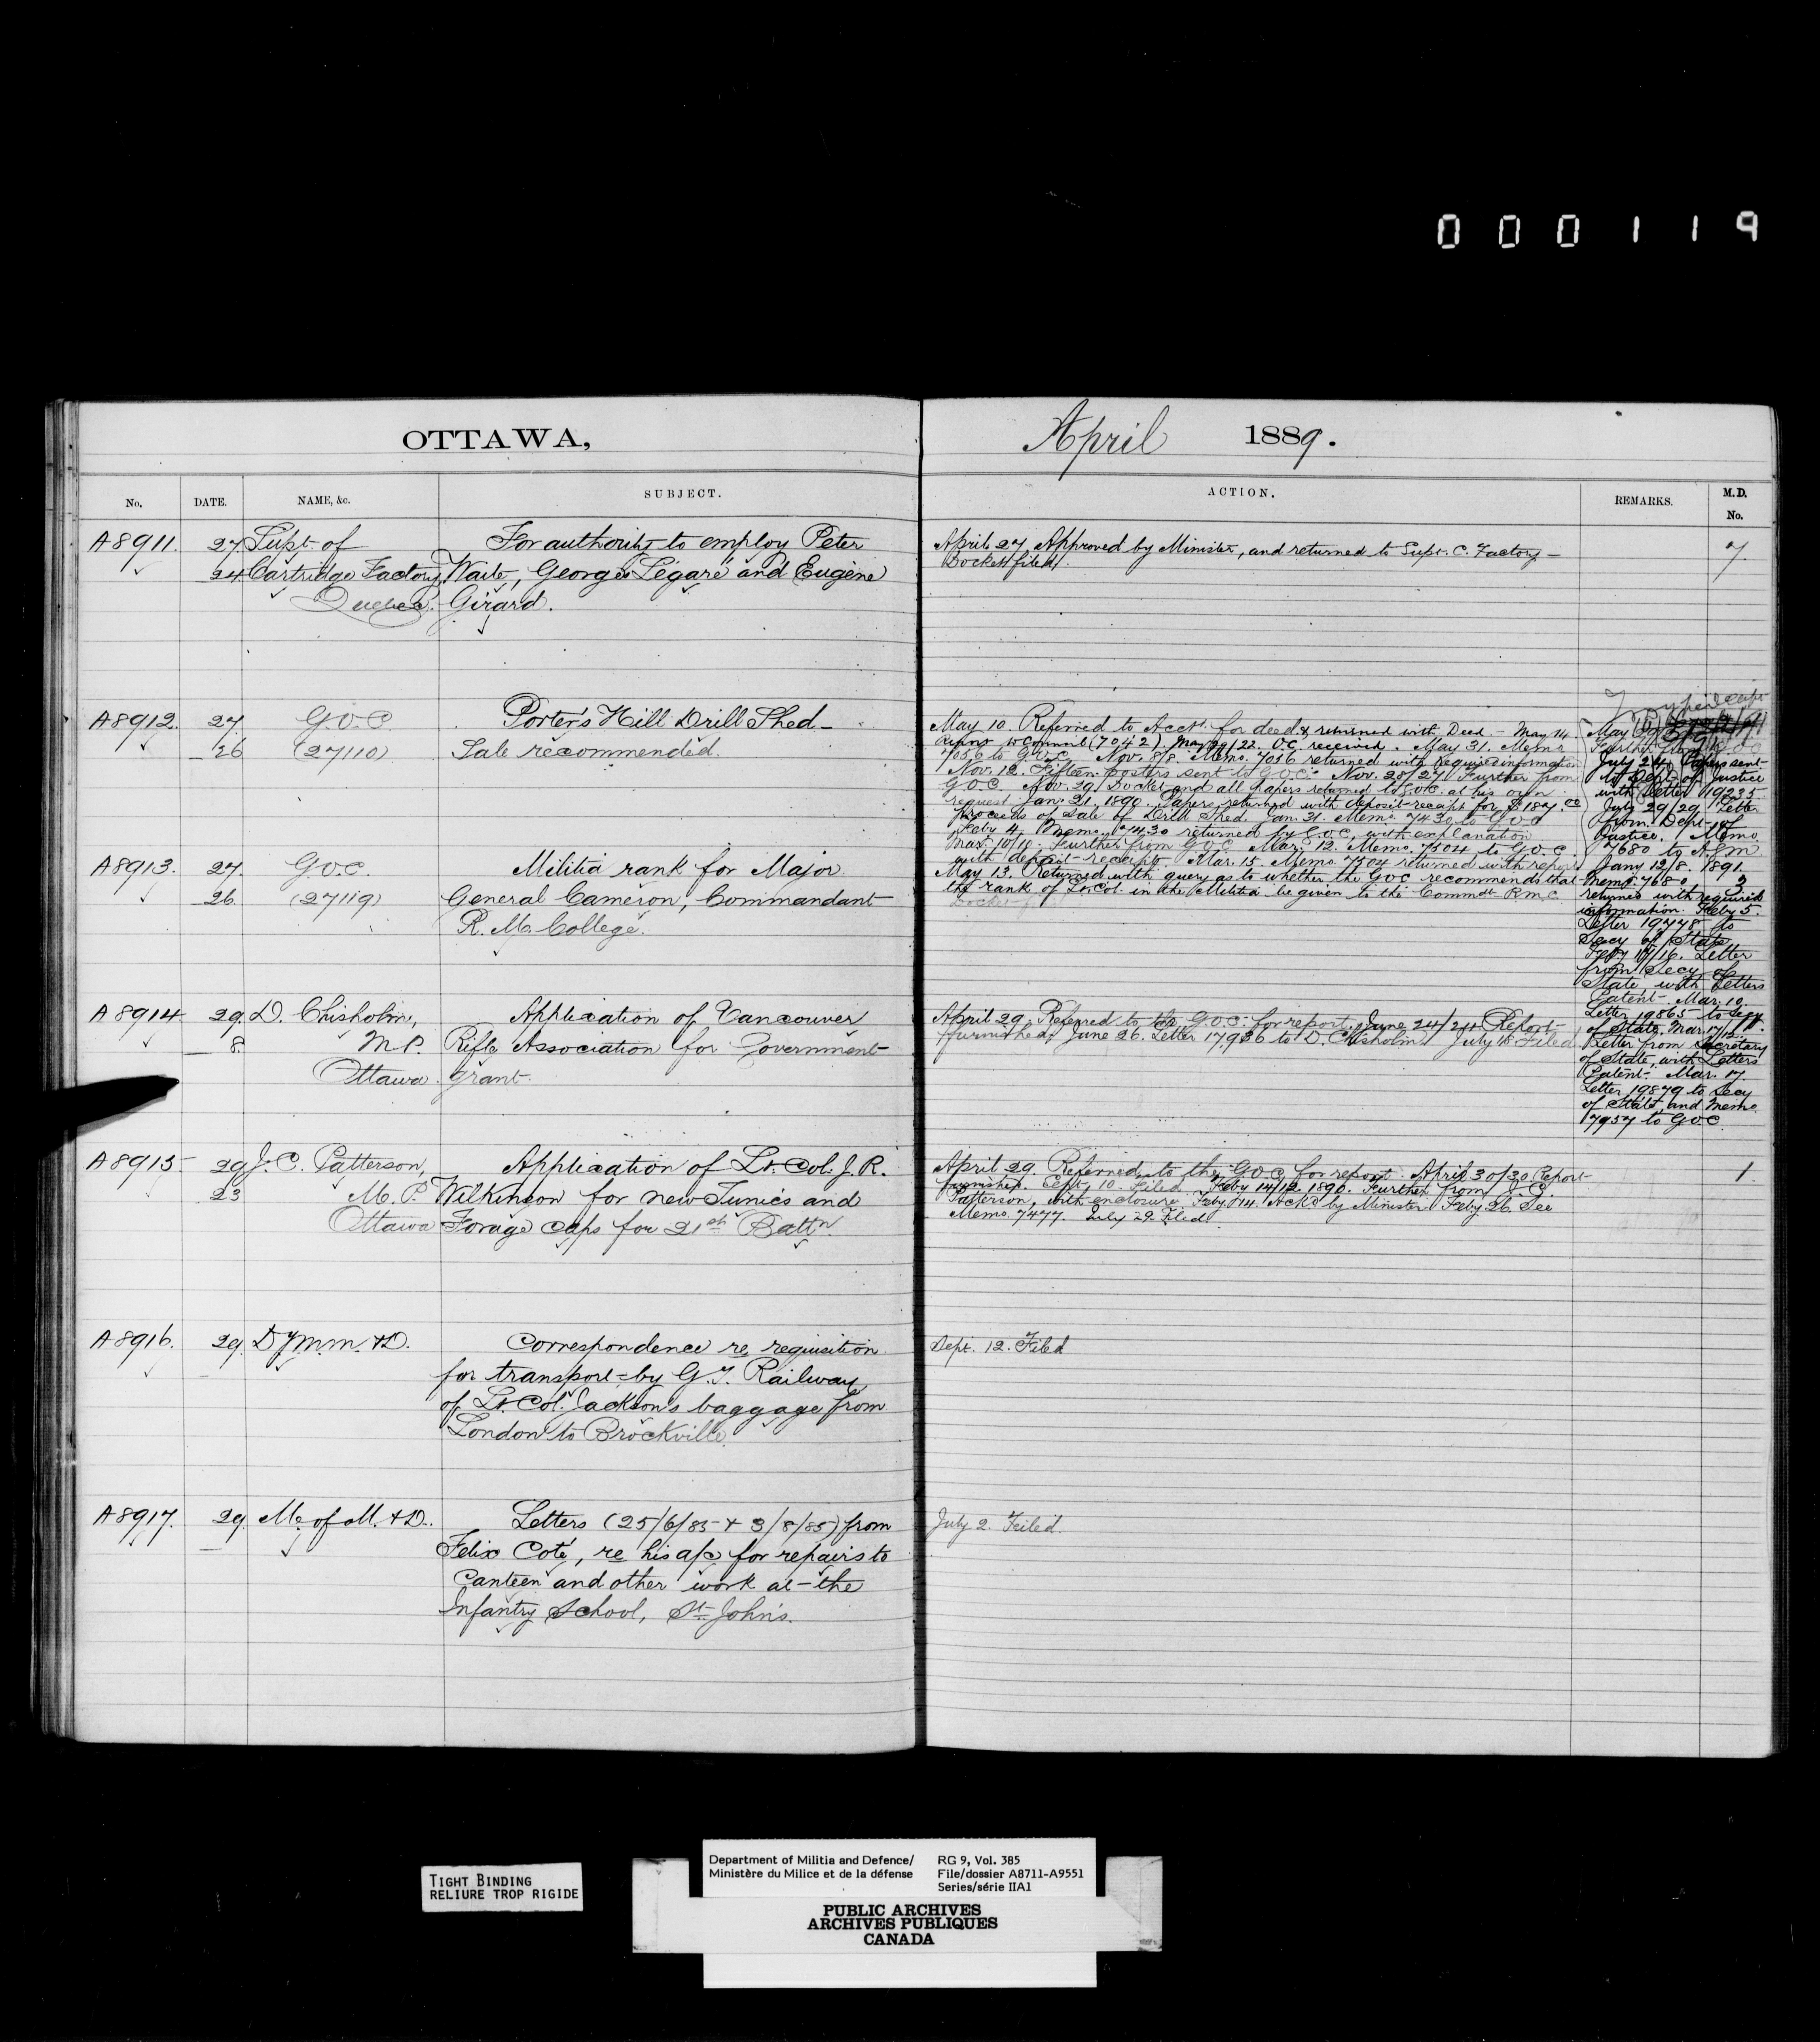 000119
OTTAWA,
April 1889.
No. DATE. NAME, &c. SUBJECT.
ACTION. REMARKS. M.D. No.
A8911. 27 Supt. of For authority to employ Peter
24 Cartridge Factory, Waite, Georges Légaré and Eugène
Quebec. Girard.
April 27 Approved by Minister, and returned to Supt. C. Factory — 7
Docket filed.
A8912. 27. G.O.C. Porter's Hill Drill Shed —
26 (27110) Sale recommended.
May 10. Referred to Acct. for deed & returned with Deed — May 14.
Report to Council (7042). May 22. O.C. received. May 31. Memo
7056 to G.O.C. Nov. 8/8. Memo. 7056 returned with required information
Nov. 12. Fifteen posters sent to G.O.C. Nov. 28/27 Further from
G.O.C. Nov. 29/ Docket and all papers returned to G.O.C. at his own
request Jan. 21. 1890. Papers returned with deposit-receipt for $187.00
proceeds of sale of Drill Shed. Jan. 31. Memo 7430 to G.O.C
Feby 4. Memo. 7430 returned by G.O.C. with explanation
Mar. 10/10. Further from G.O.C Mar. 12. Memo. 7504 to G.O.C.
with deposit-receipt. Mar. 15. Memo. 7504 returned with report
May
Further from G.O.C
July 24. Papers sent
to Dept. of Justice
with Letter 19235
July 29/29 Letter
from Dept. of
Justice. Memo
7680 to A.G.M
Jany 12/8. 1891.
Memo. 7680
returned with required
information. Feby 5.
Letter 19778 to
Secy of State
Feby 17/16. Letter
from Secy of
State, with Letters
Patent — Mar. 10.
Letter 19865 to Secy
of State. Mar. 17/12.
Letter from Secretary
of State, with Letters
Patent — Mar. 17.
Letter 19879 to Secy
of State, and Memo
7957 to G.O.C.
A8913. 27. G.O.C. Militia rank for Major
26. (27119) General Cameron, Commandant
R. M. College.
May 13. Returned with query as to whether the G.O.C recommends that 3
the rank of Lt. Col. in the Militia be given to the Commdt R.M.C.
A8914 29. D. Chisholm, Application of Vancouver
8. M.P. Rifle Association for Government
Ottawa. grant.
April 29. Referred to the G.O.C. for report. June 24/24 Report 11.
furnished. June 26. Letter 17936 to D. Chisholm July 18 Filed
A8915 29 J.C. Patterson, Application of Lt. Col. J.R.
23 M.P. Wilkinson for new Tunics and
Ottawa Forage Caps for 21st Battn.
April 29. Referred to the G.O.C. for report. April 30/30 Report 1.
furnished. Sept. 10. Filed Feby 14/12 1890. Further from J.C.
Patterson, with enclosure Feby 14. Ackd by Minister Feby 26. See
Memo. 7477. July 29. Filed
A8916. 29. D of M. M. & D. Correspondence re requisition
for transport by G.T. Railway
of Lt. Col. Jackson's baggage from
London to Brockville.
Sept. 12. Filed
A8917. 29. Mr. of M. & D. Letters (25/6/85 & 3/8/85) from
Felix Coté, re his a/c for repairs to
Canteen and other work at the
Infantry School, St. John's.
July 2. Filed.
TIGHT BINDING
RELIURE TROP RIGIDE
Department of Militia and Defence/ RG 9, Vol. 385
Ministère du Milice et de la défense File/dossier A8711-A9551
Series/série IIA1
PUBLIC ARCHIVES
ARCHIVES PUBLIQUES
CANADA